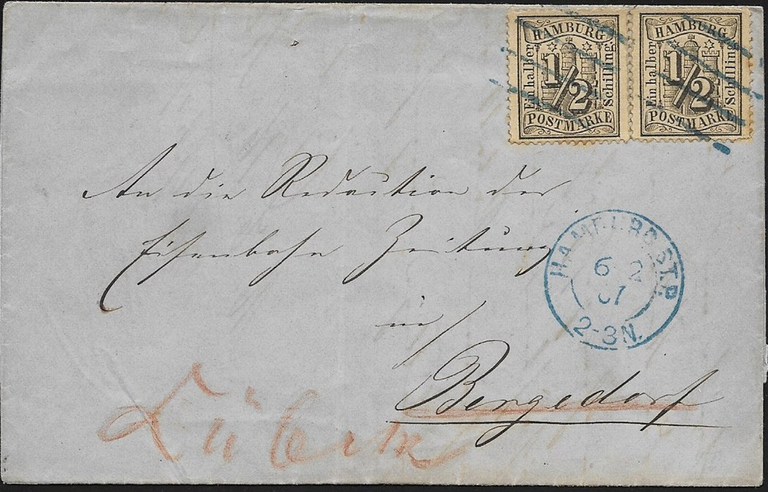 HAMBURG
Ein halber
1/2
Schilling
POSTMARKE
HAMBURG
Ein halber
1/2
Schilling
POSTMARKE
An die Redaction der
Eisenbahn Zeitung
in
Bergedorf
HAMBURG ST.P.
6 2
67
2-3N.
Lübeck